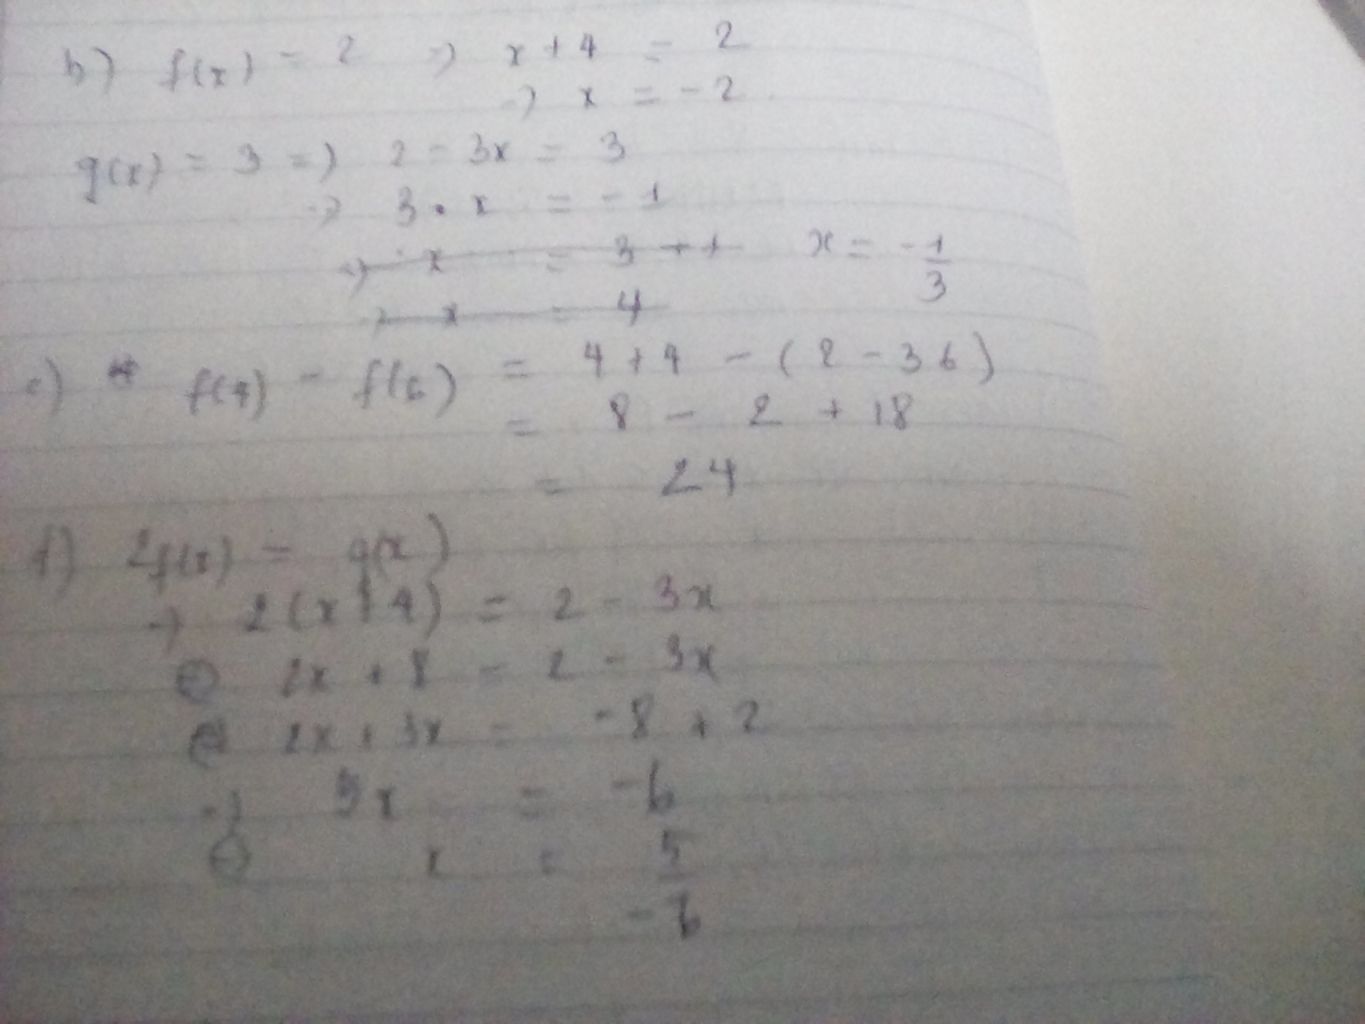 b) f(x) = 2 => x + 4 = 2
=> x = -2
g(x) = 3 => 2 - 3x = 3
=> 3 . x = -1
=> x = 3 + 1 x = -1/3
=> x = 4
c) f(4) - f(6) = 4 + 4 - (2 - 36)
= 8 - 2 + 18
= 24
f) 2f(x) = g(x)
=> 2(x + 4) = 2 - 3x
2x + 8 = 2 - 3x
2x + 3x = -8 + 2
=> 5x = -6
x = 5/-6